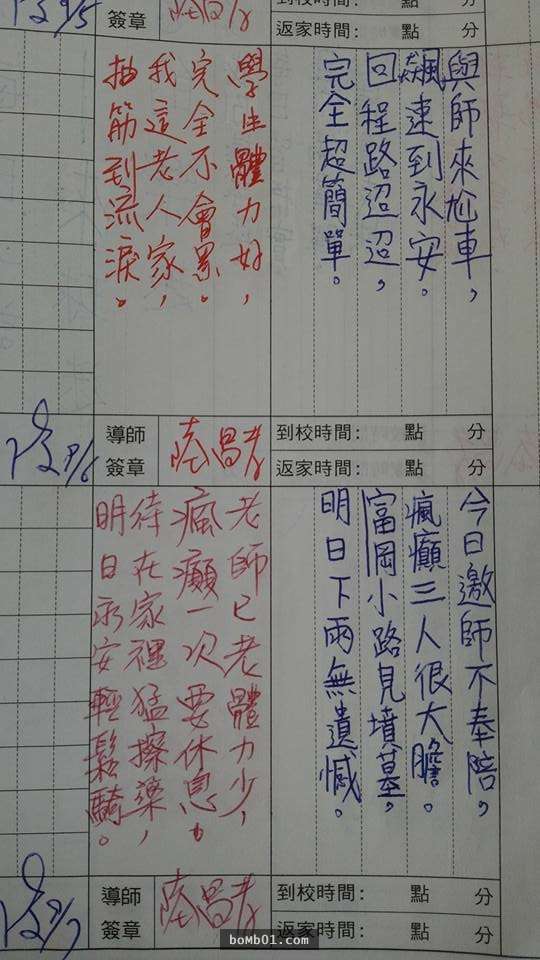 簽章
到校時間: 點 分
返家時間: 點 分
與師來尬車，
飆速到永安。
回程路迢迢，
完全超簡單。
學生體力好，
完全不會累。
我這老人家，
抽筋到流淚。
導師
簽章
到校時間: 點 分
返家時間: 點 分
今日邀師不奉陪，
瘋癲三人很大膽。
富岡小路見墳墓，
明日下雨無遺憾。
老師已老體力少，
瘋癲一次要休息。
待在家裡猛擦藥，
明日永安輕鬆騎。
導師
簽章
到校時間: 點 分
返家時間: 點 分
boMb01.com